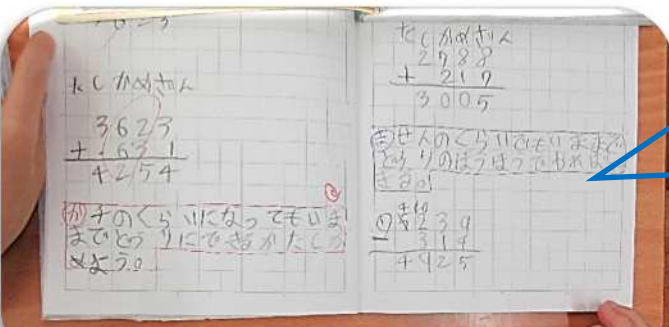 たしかめざん
3623
+ 631
4254
か千のくらいになってもいま
までどうりにできるかたしか
めよう。
たしかめざん
2788
+ 217
3005
ませんのくらいでもいままで
どうりのほうほうでやればで
きる。
4 10
5239
- 314
4925